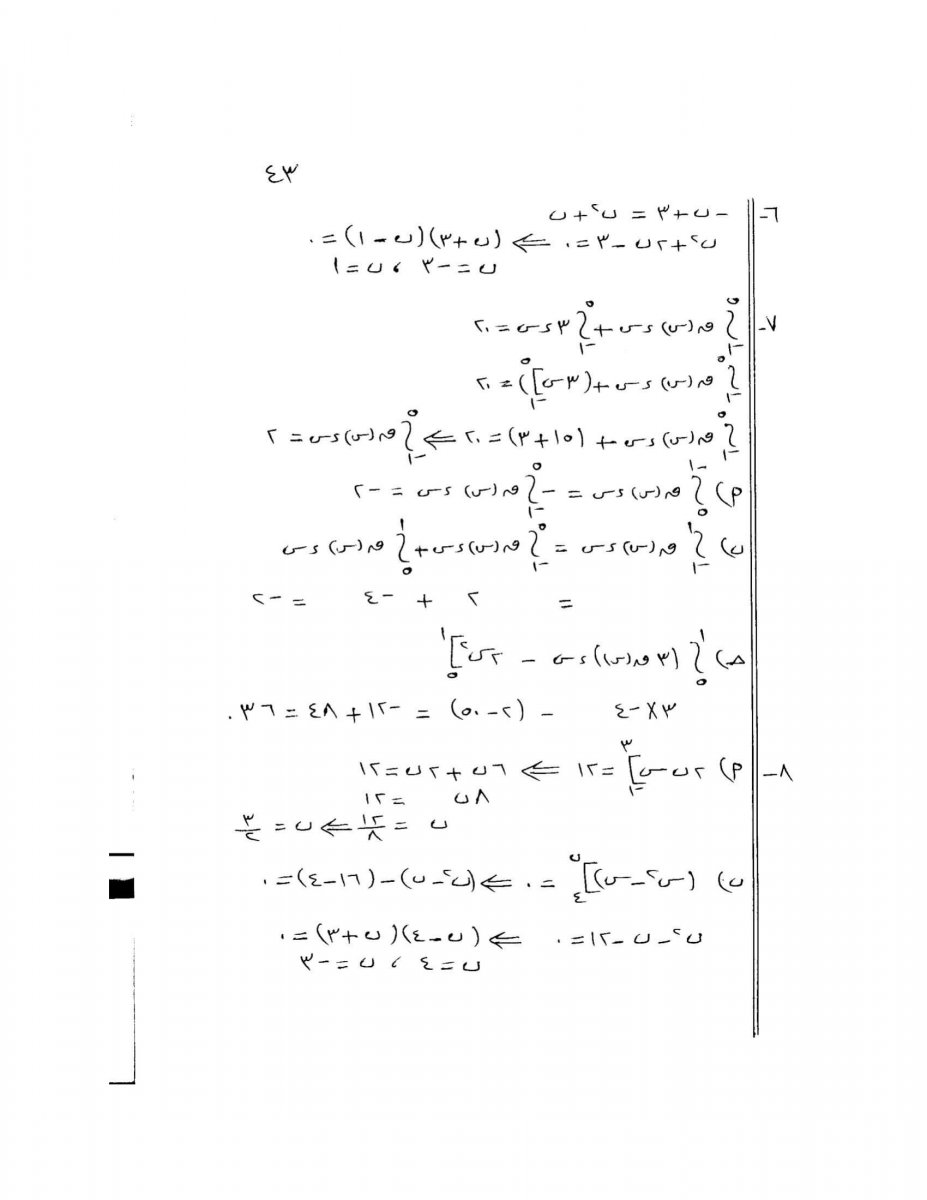 ٤٣
٦- -ن+٣ = ن٢+ن
ن٢+٢ن-٣=٠ ⇐ (ن+٣)(ن-١)=٠
ن=-٣ ، ن=١
٧- ∫_{-١}^{٥} ق(س) ءس + ∫_{-١}^{٥} ٣ ءس = ٢٠
∫_{-١}^{٥} ق(س) ءس + (٣س]_{-١}^{٥}) = ٢٠
∫_{-١}^{٥} ق(س) ءس + (١٥+٣) = ٢٠ ⇐ ∫_{-١}^{٥} ق(س) ءس = ٢
م) ∫_{٥}^{-١} ق(س) ءس = -∫_{-١}^{٥} ق(س) ءس = -٢
ن) ∫_{-١}^{١} ق(س) ءس = ∫_{-١}^{٥} ق(س) ءس + ∫_{٥}^{١} ق(س) ءس
= ٢ + -٤ = -٢
ھ) ∫_{٥}^{١} (٣ق(س)) ءس - ٢س٢]_{٥}^{١}
٣×-٤ - (٢-٥٠) = -١٢+٤٨=٣٦.
٨- م) ٢ن س]_{-١}^{٣} = ١٢ ⇐ ٦ن+٢ن=١٢
٨ن = ١٢
ن = ١٢/٨ ⇐ ن = ٣/٢
ن) (س٢-س)]_{٤}^{ن} = ٠ ⇐ (ن٢-ن)-(١٦-٤)=٠
ن٢-ن-١٢=٠ ⇐ (ن-٤)(ن+٣)=٠
ن=٤ ، ن=-٣